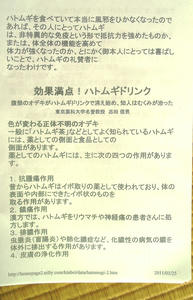 ハトムギを食べていて本当に風邪をひかなくなったので
あれば、その人にとってハトムギ
は、非特異的な免疫という形で抵抗力を強めたものか、
または、体全体の機能を高めて
体力が強くなったのか、とにかく御本人にとっては喜ばし
いことで、ハトムギの礼賛者に
なったわけです。
効果満点！ハトムギドリンク
腹部のオデキがハトムギドリンクで消え始め、知人はむくみが治った
東京薬科大学名誉教授
色が変わる正体不明のオデキ
一般に「ハトムギ茶」などとしてよく知られているハトムギ
には、薬としての側面と食品としての
側面があります。
薬としてのハトムギには、主に次の四つの作用がありま
す。
1、抗腫瘍作用
昔からハトムギはイボ取りの薬として使われており、体の
表面や内部にできたイボ状のものを
取る作用があります。
2、鎮痛作用
漢方では、ハトムギをリウマチや神経痛の患者さんに処
方します。
3、排膿作用
虫垂炎（盲腸炎）や肺化膿症など、化膿性の病気の膿を
体外に排出する作用があります。
4、皮膚の浄化作用
2011/02/25